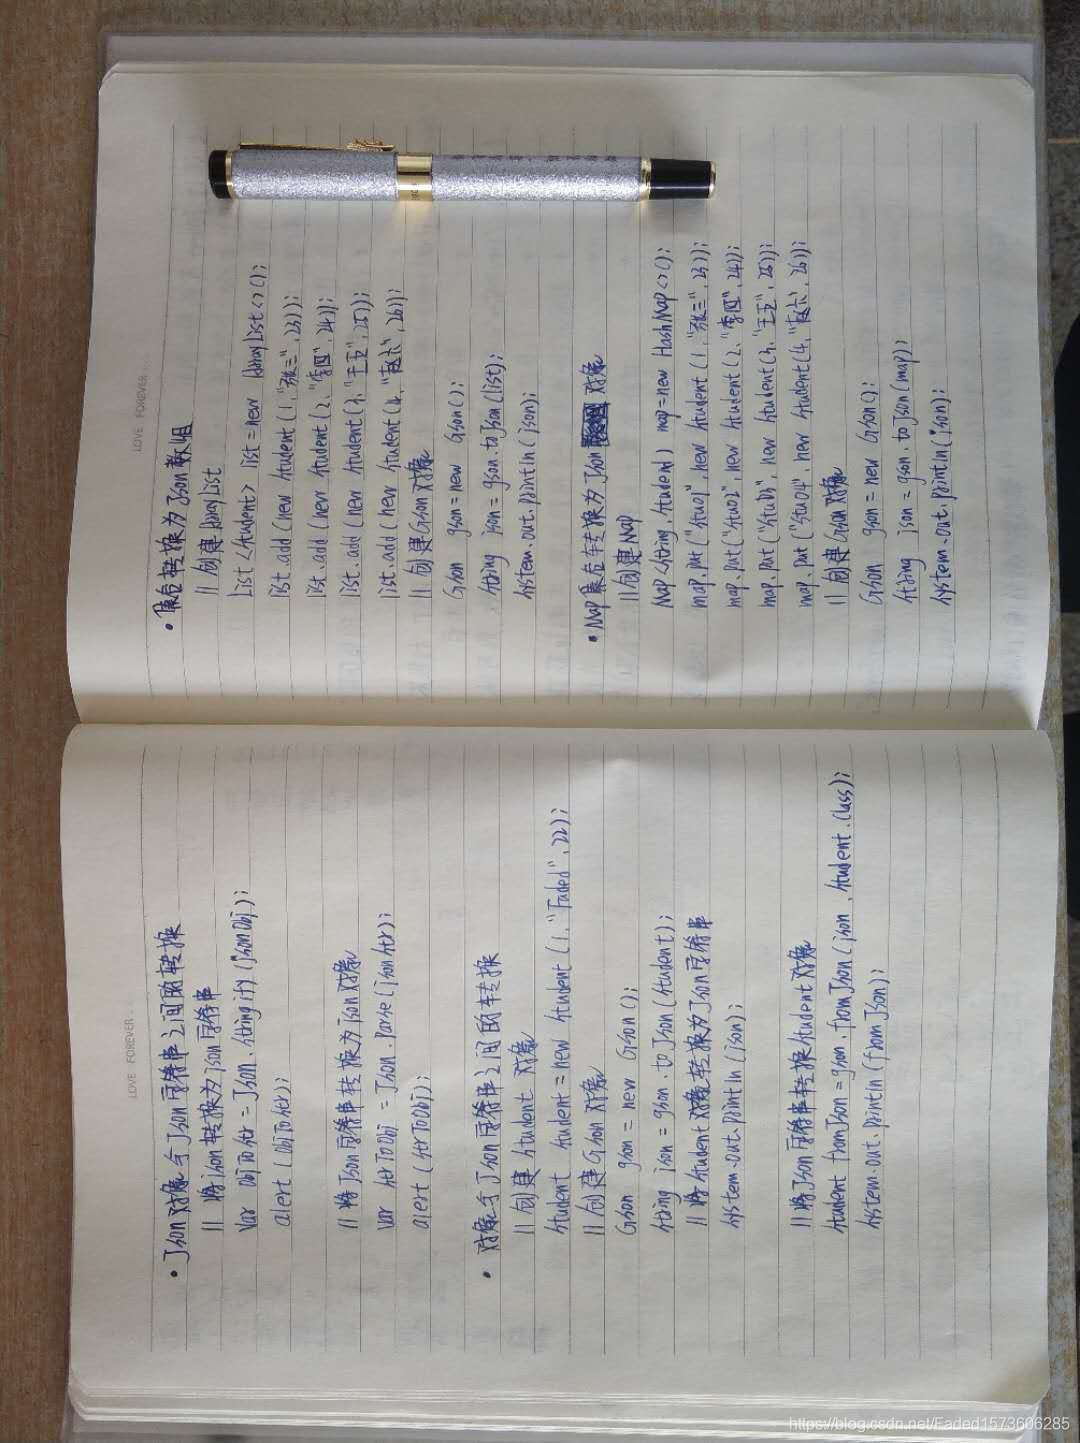 LOVE FOREVER...
• Json对象与Json字符串之间的转换
// 将json转换为json字符串
Var ObjToStr = Json.stringify(jsonObj);
alert(ObjToStr);
// 将Json字符串转换为json对象
Var StrToObj = Json.Parse(jsonStr);
alert(StrToObj);
• 对象与Json字符串之间的转换
// 创建Student 对象
Student student = new Student(1,"Faded",22);
// 创建Gson对象
Gson gson = new Gson();
String json = gson.toJson(student);
// 将Student对象转换为Json字符串
System.out.println(json);
// 将Json字符串转换Student对象
Student fromJson = gson.fromJson(json,Student.class);
System.out.println(fromJson);
LOVE FOREVER...
• 集合转换为Json数组
// 创建ArrayList
List<Student> list = new ArrayList<>();
list.add(new Student(1,"张三",23));
list.add(new Student(2,"李四",24));
list.add(new Student(3,"王五",25));
list.add(new Student(4,"赵六",26));
// 创建Gson对象
Gson gson = new Gson();
String json = gson.toJson(list);
System.out.println(json);
• Map集合转换为Json对象
// 创建Map
Map<String,Student> map = new HashMap<>();
map.put("Stu01",new Student(1,"张三",23));
map.put("Stu02",new Student(2,"李四",24));
map.put("Stu03",new Student(3,"王五",25));
map.put("Stu04",new Student(4,"赵六",26));
// 创建Gson对象
Gson gson = new Gson();
String json = gson.toJson(map);
System.out.println(json);
https://blog.csdn.net/Faded1573606285